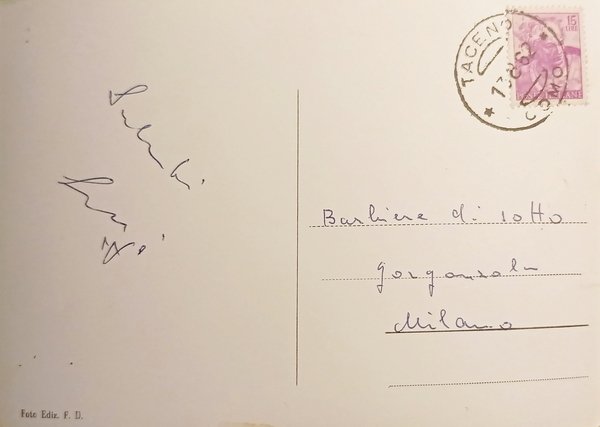 TACENO
13 8 62
COMO
15
LIRE
Saluti
Barbiere di sotto
Gorgonzola
Milano
Foto Ediz. F. D.